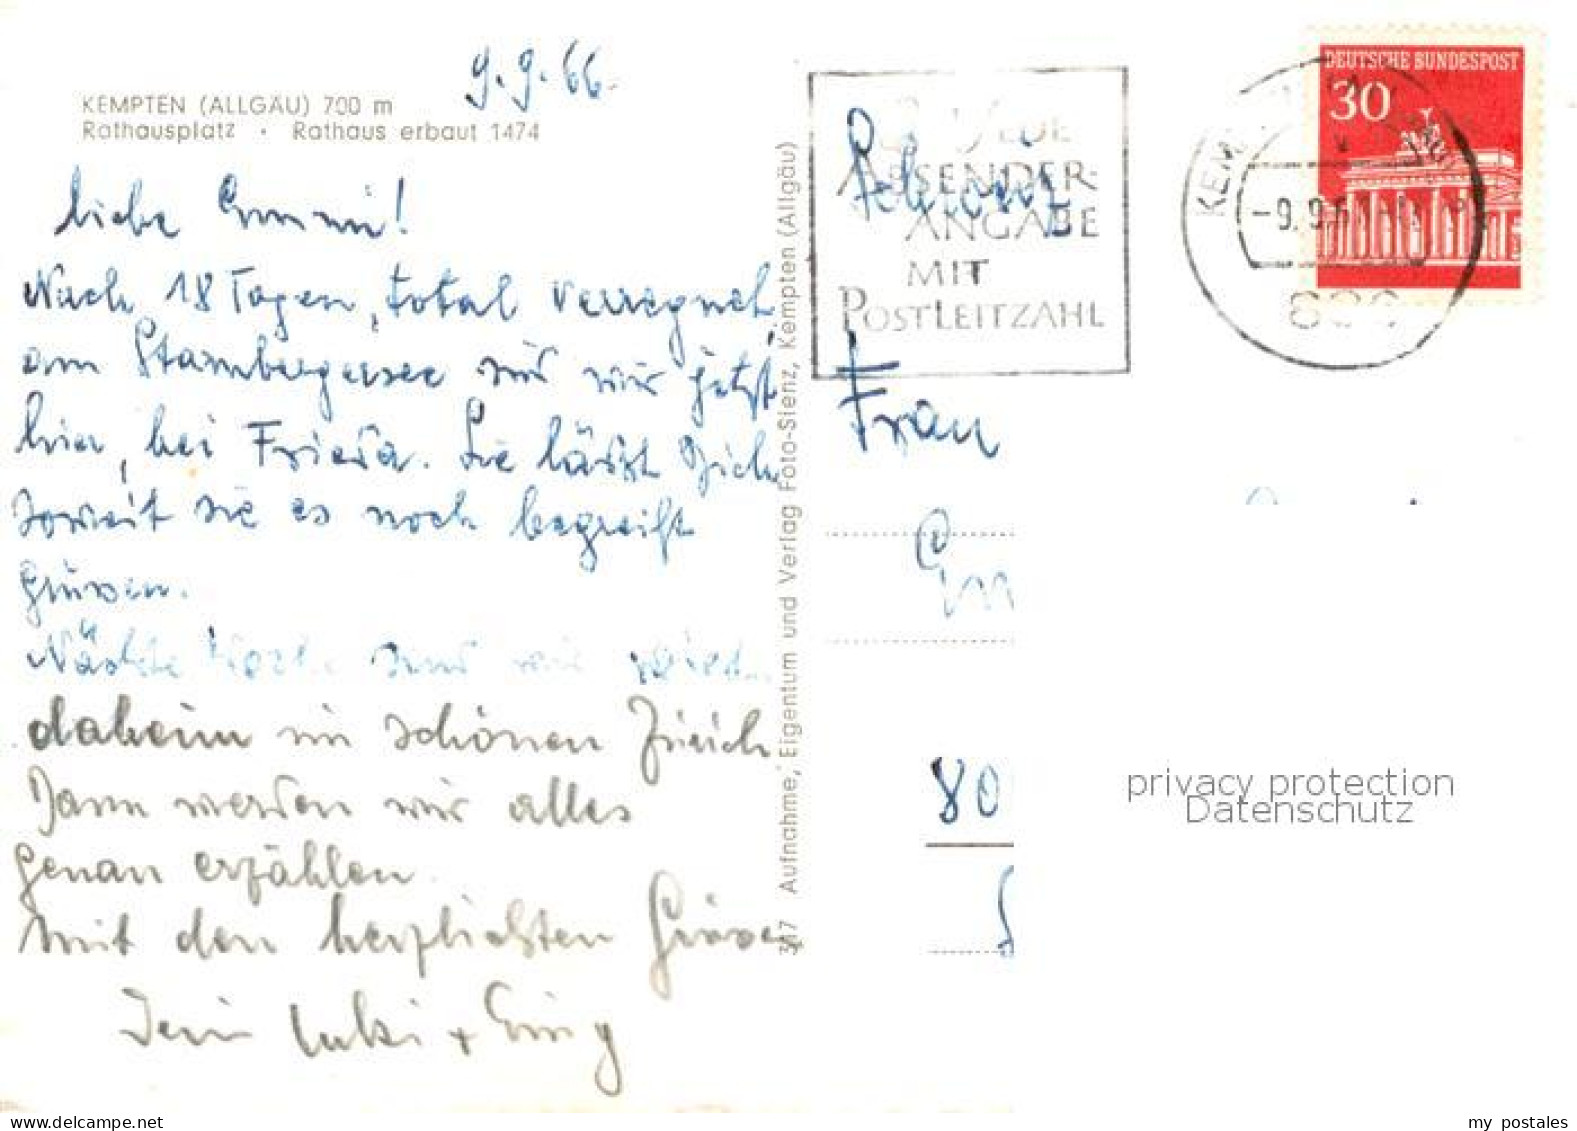 9.9.66.
KEMPTEN (ALLGÄU) 700 m
Rathausplatz · Rathaus erbaut 1474
liebe Emmi!
Nach 18 Tagen, total verregnet,
am Starnbergersee sind wir jetzt
hier, bei Frieda. Sie lässt Dich
soweit sie es noch begreift
grüssen.
Nächste Woche sind wir wieder
daheim im schönen Zürich
Dann werden wir alles
genau erzählen.
Mit den herzlichsten Grüssen
+
317 Aufnahme, Eigentum und Verlag Foto-Sienz, Kempten (Allgäu)
ABSENDER-
ANGABE
MIT
POSTLEITZAHL
DEUTSCHE BUNDESPOST
30
KEM
-9.9.6
Schweiz
Frau
80
privacy protection
Datenschutz
my postales